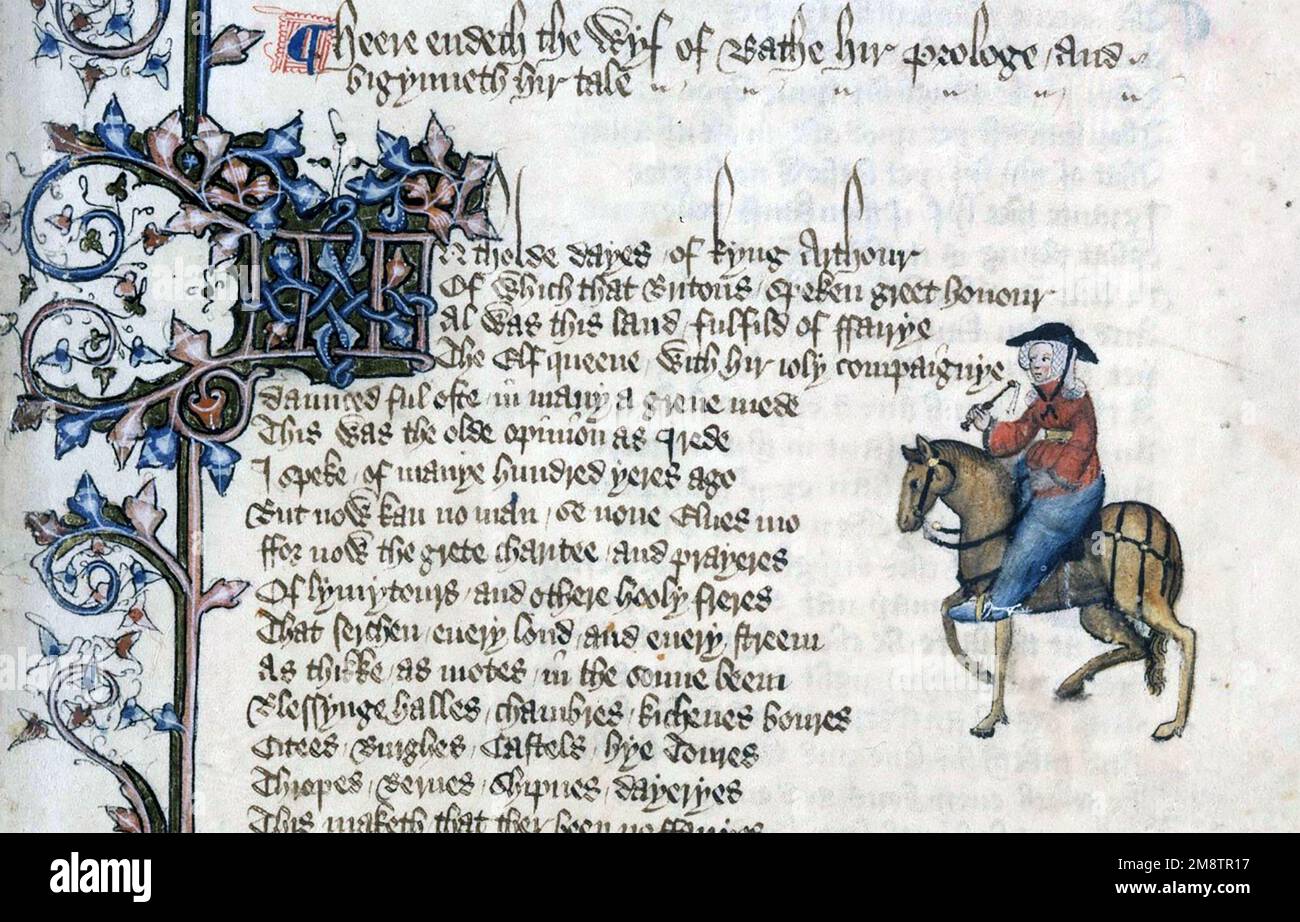 Heere endeth the Wyf of Bathe hir prologe / and
bigynneth hir tale
IN tholde dayes / of kyng Arthour
Of Which that Britons / speken greet honour
Al was this land / fulfild of ffairye
The Elf queene / With hir ioly compaignye
daunced ful ofte / in many a grene mede
This was the olde opinion as I rede
I speke / of manye hundred yeres ago
But now kan no man / se none Elues mo
ffor now the grete charitee / and prayeres
Of lymytours / and othere hooly freres
That serchen / euery lond / and euery / streem
As thikke / as motes / in the sonne beem
Blessynge halles / chambres / kichenes boures
Citees / Burghes / Castels / hye Toures
Thropes / Bernes / Shipnes / dayeryes
This maketh that ther been no ffairyes
alamy
Image ID: 2M8TR17
www.alamy.com